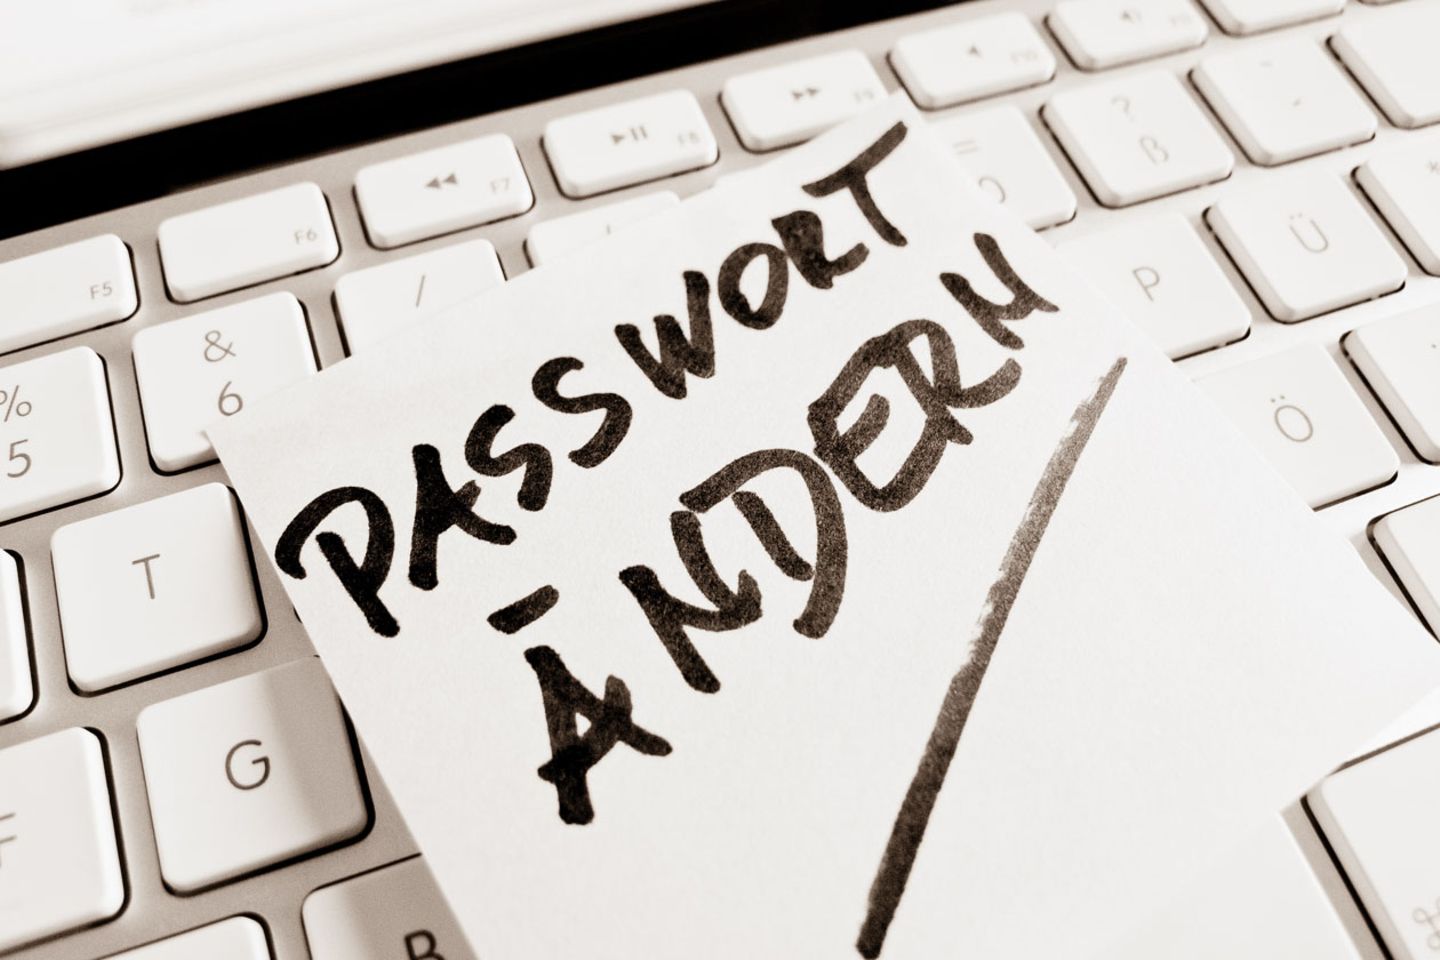 F5
F6
◀◀ F7
▶II F8
▶▶ F9
◀ F10
%
5
&
6
/
=
?
ß
T
P
Ü
G
Ö
F
B
⌘
PASSWORT
ÄNDERN